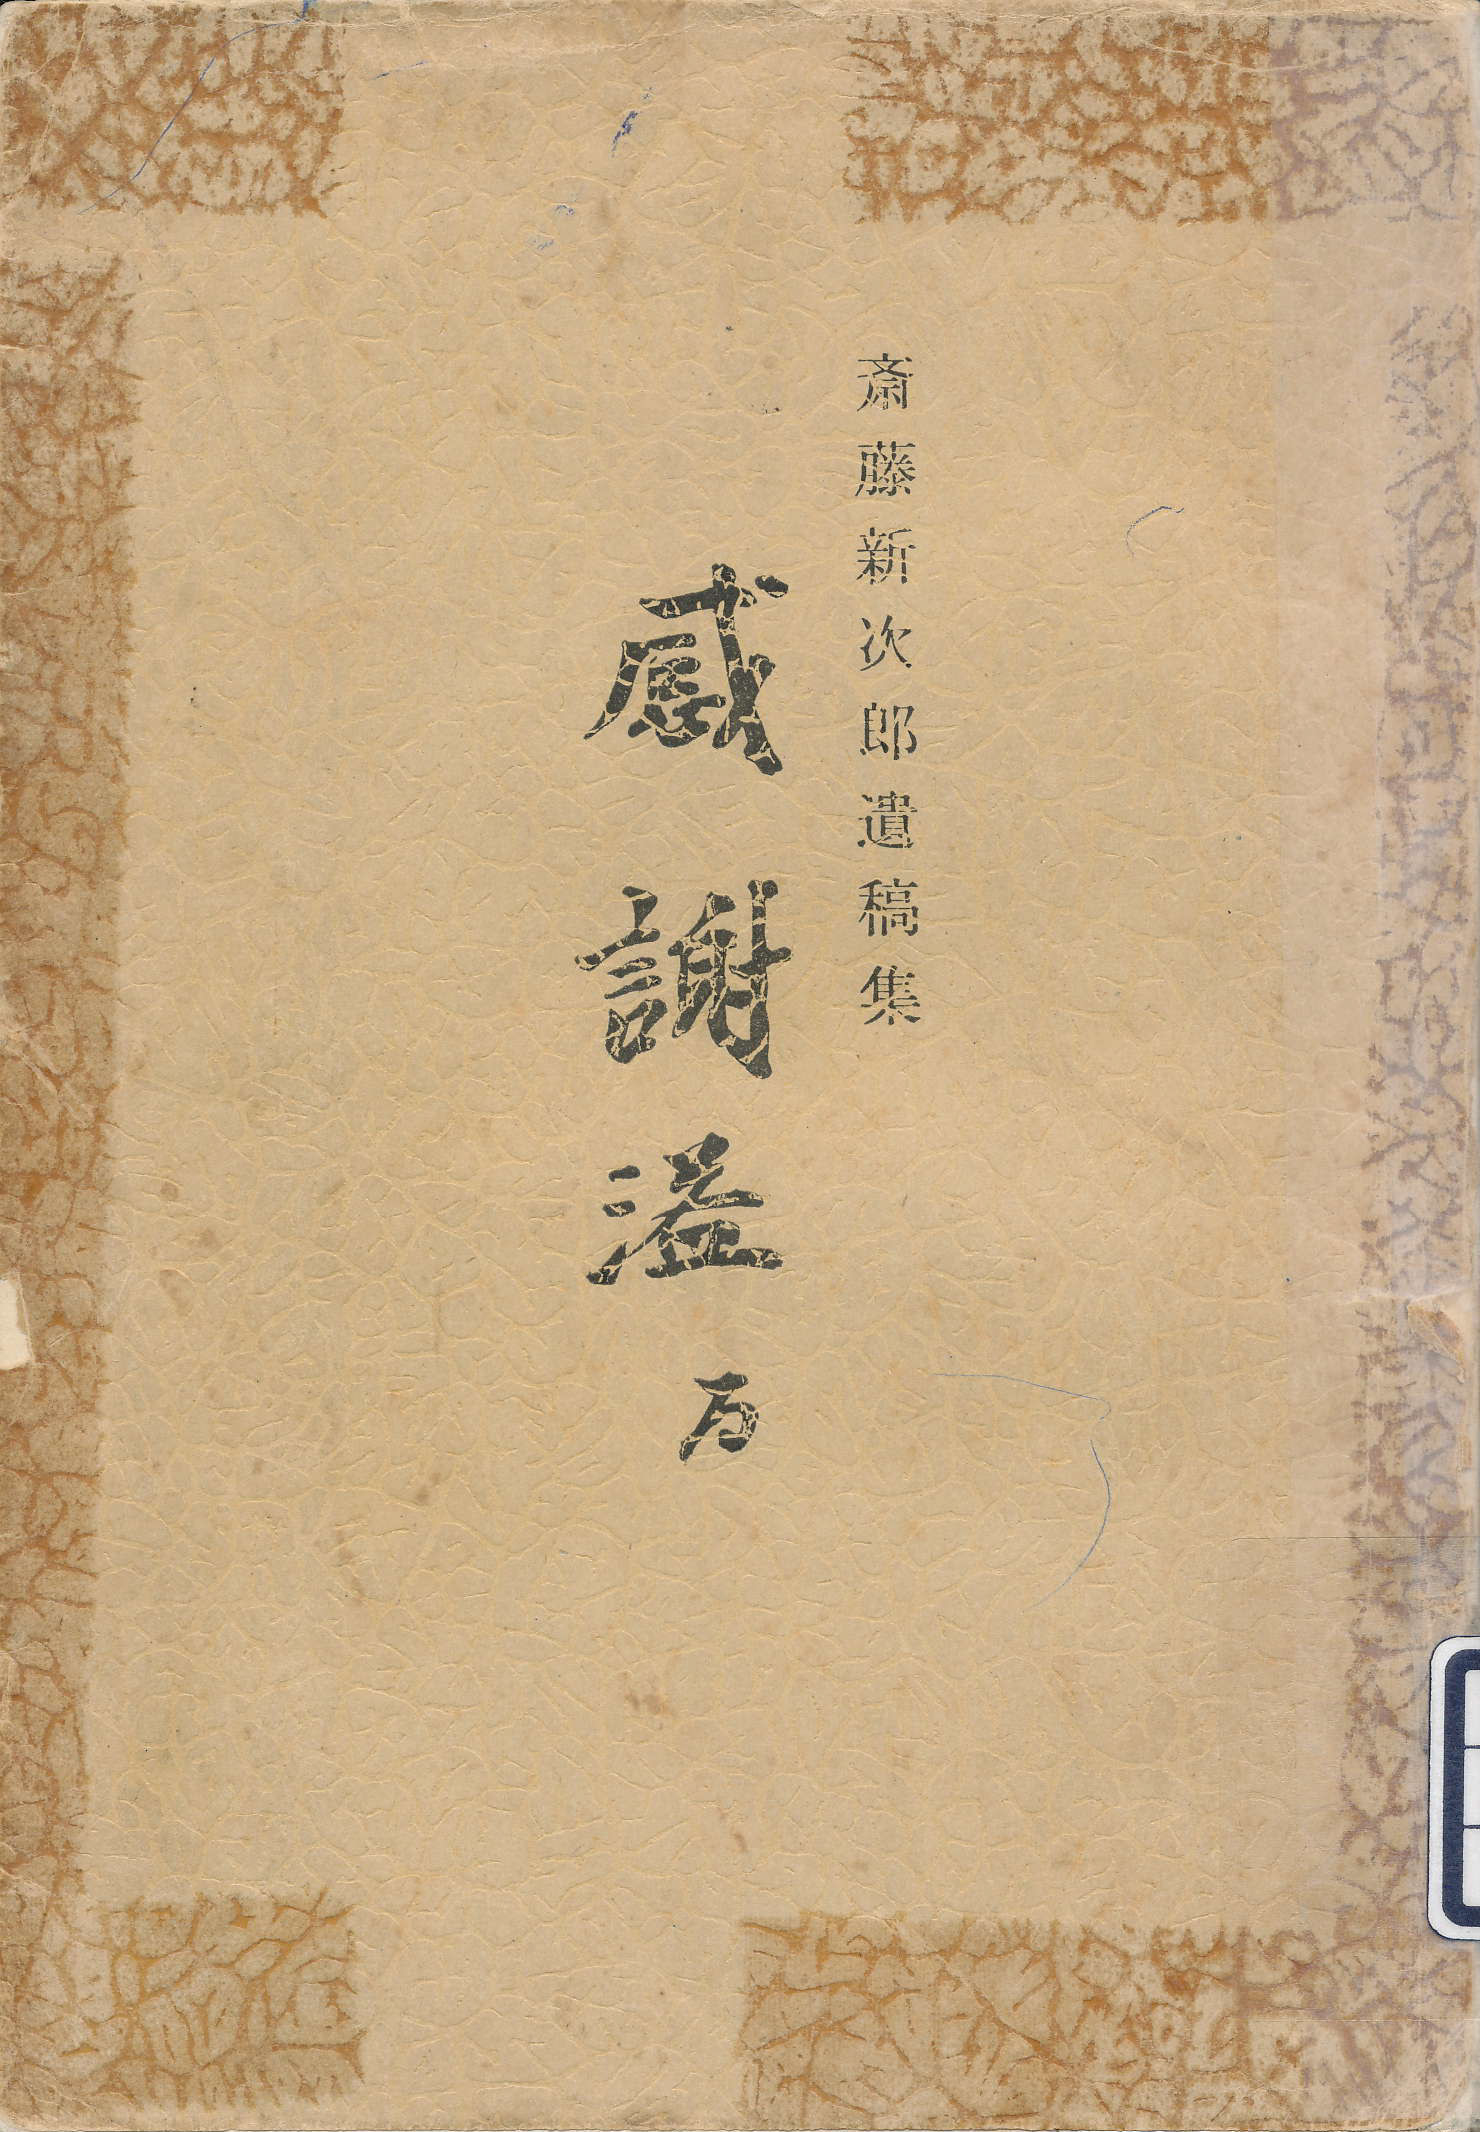 斎藤新次郎遺稿集
感謝溢る